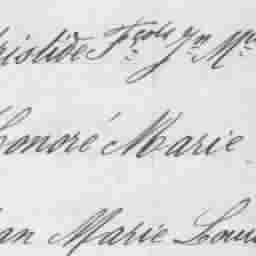 ristide Fçois Jn Mie
Honoré Marie
an Marie Loui